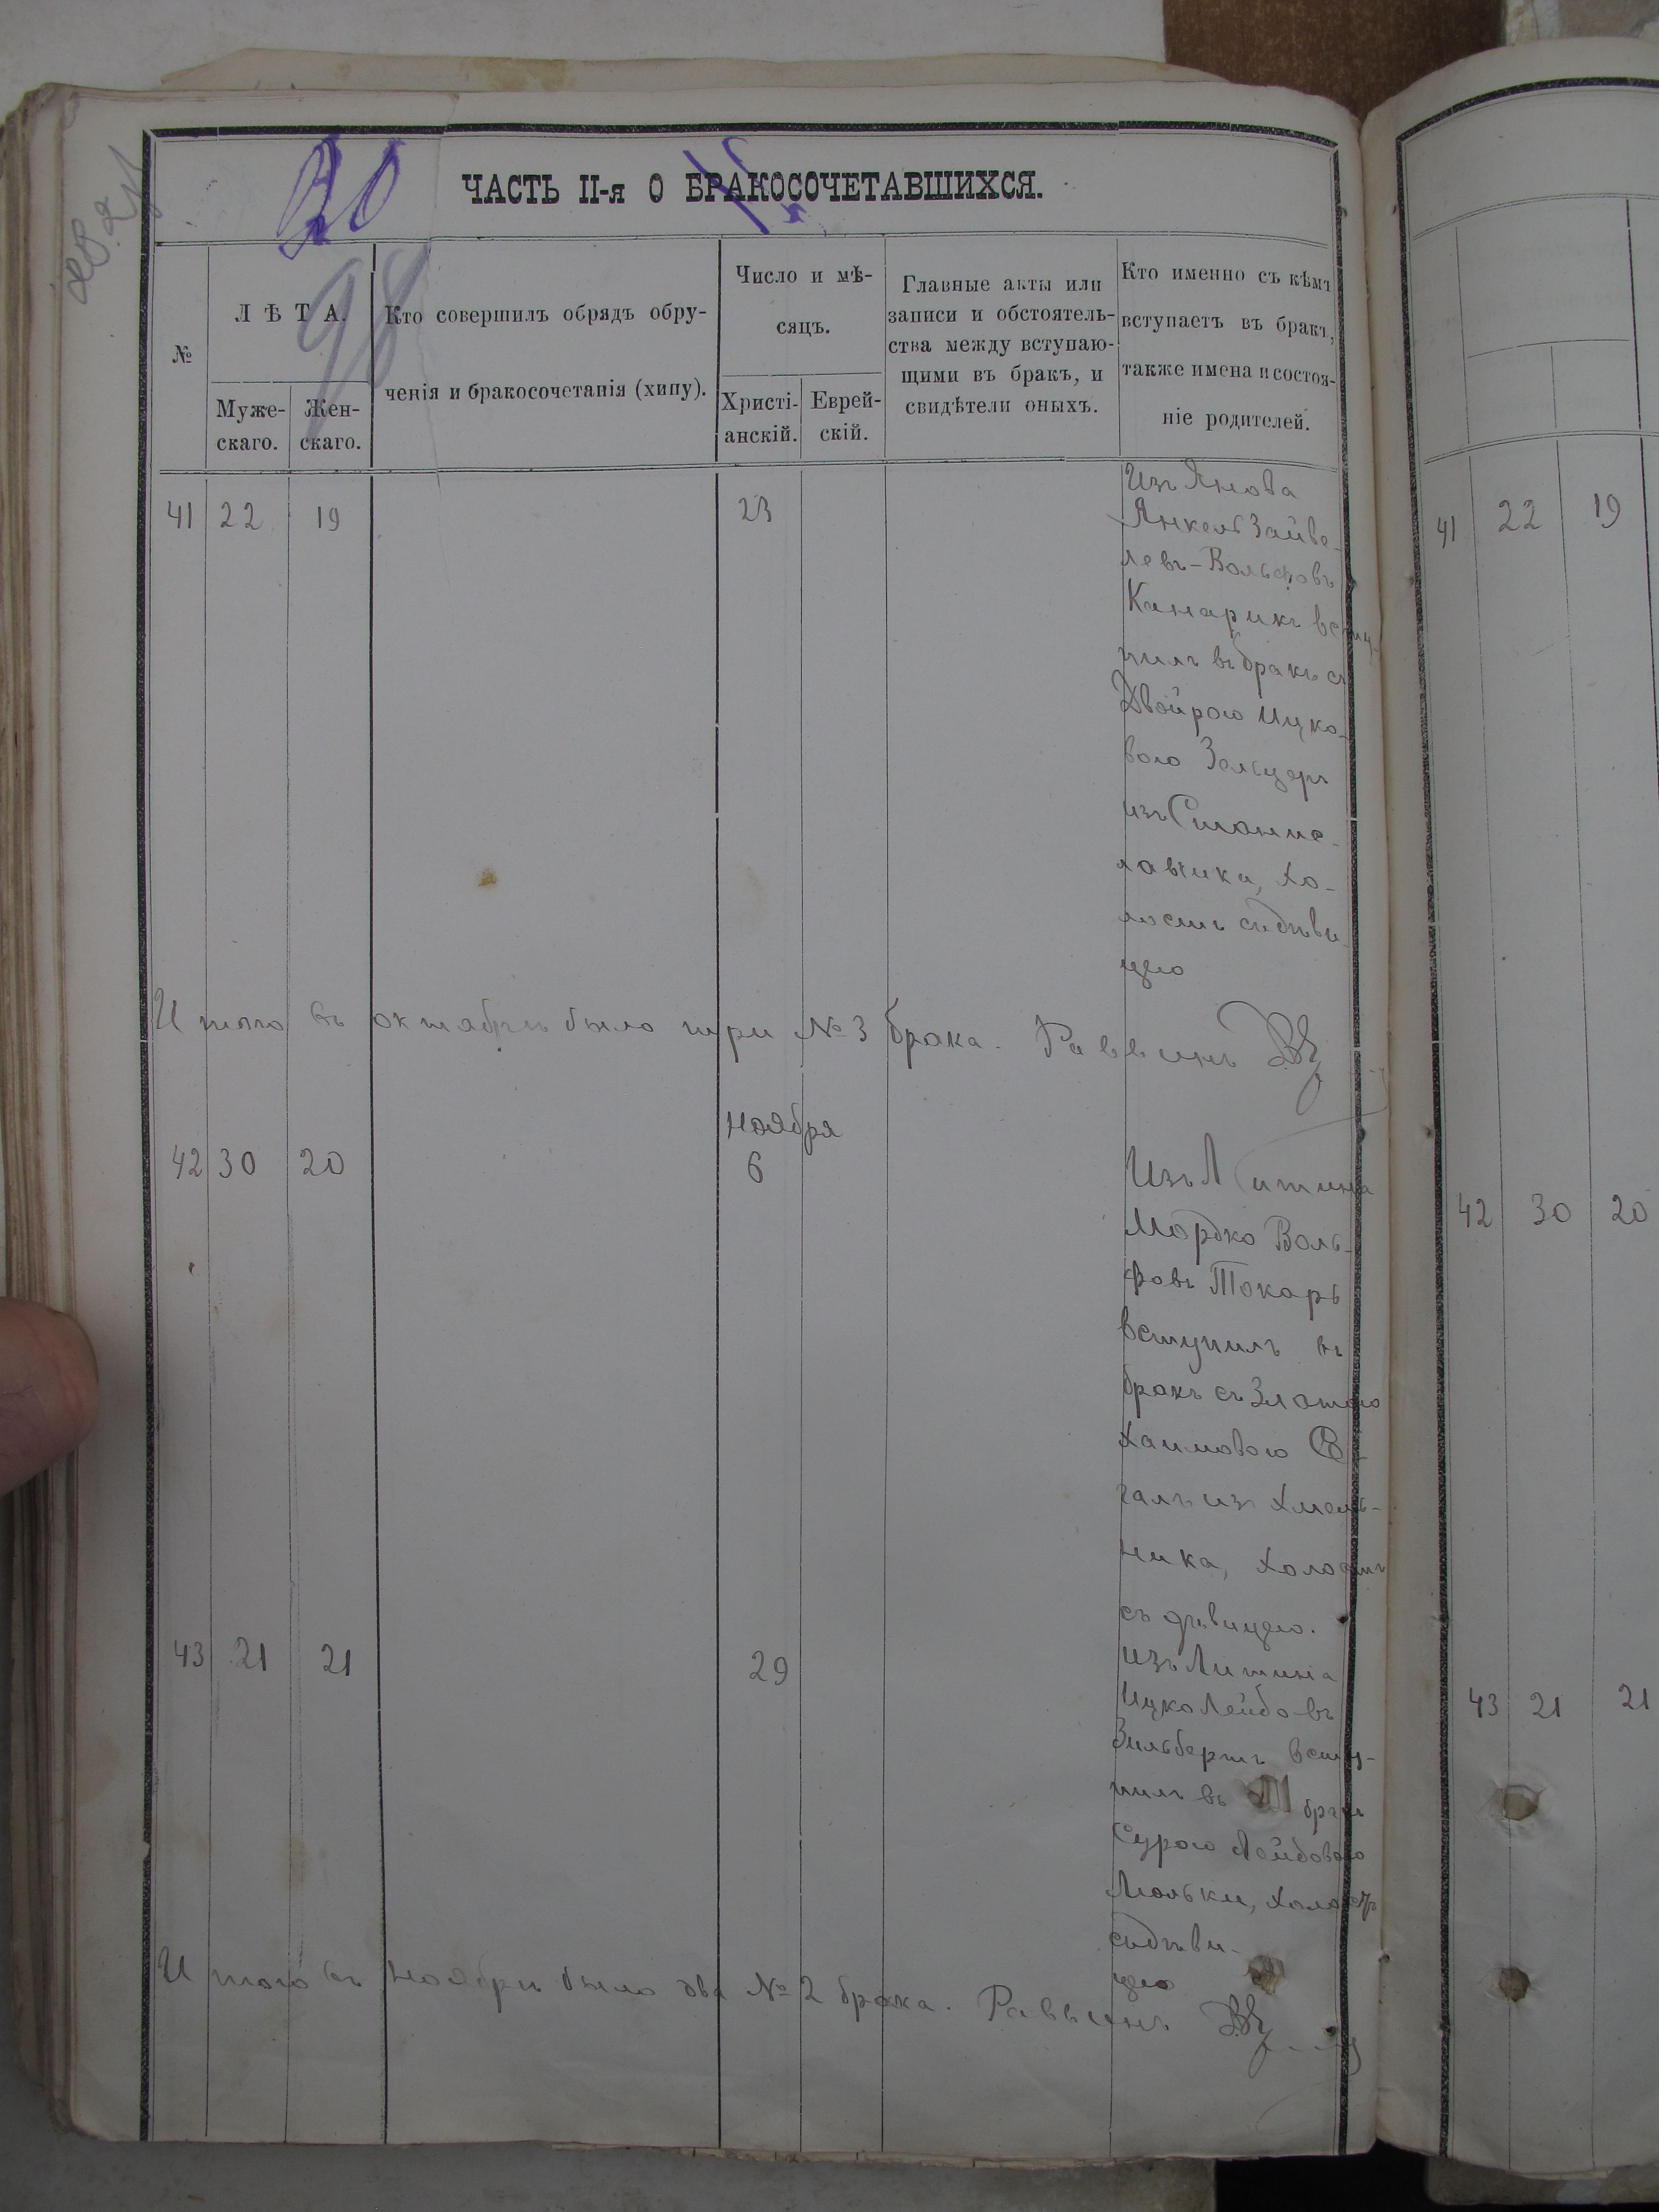 20
98
ЧАСТЬ II-я О БРАКОСОЧЕТАВШИХСЯ.
№
ЛѢТА.
Муже-
скаго.
Жен-
скаго.
Кто совершилъ обрядъ обру-
ченія и бракосочетанія (хипу).
Число и мѣ-
сяцъ.
Христі-
анскій.
Еврей-
скій.
Главные акты или
записи и обстоятель-
ства между вступаю-
щими въ бракъ, и
свидѣтели оныхъ.
Кто именно съ кѣмъ
вступаетъ въ бракъ,
также имена и состоя-
ніе родителей.
41 22 19 23
Изъ Янова
Янкель Зайве-
левъ-Вольфовъ
Канарикъ всту-
пилъ въ бракъ съ
Двойрою Ицко-
вою Зельцеръ
изъ Станис-
лавчика, хо-
лостъ съ дѣви-
цею
Итого въ октябрѣ было три № 3 брака. Раввинъ
Ноября
42 30 20 6
Изъ Литина
Мордко Воль-
фовъ Токарь
вступилъ въ
бракъ съ Златою
Хаимовою Се-
галъ изъ Хмель-
ника, холостъ
съ дѣвицею.
43 21 21 29
Изъ Литина
Ицко Лейбовъ
Зильбертъ всту-
пилъ въ бракъ
Сурою Лейбовою
Мольки, холостъ
съ дѣви-
цею
Итого въ ноябрѣ было два № 2 брака. Раввинъ
41 22 19
42 30 20
43 21 21